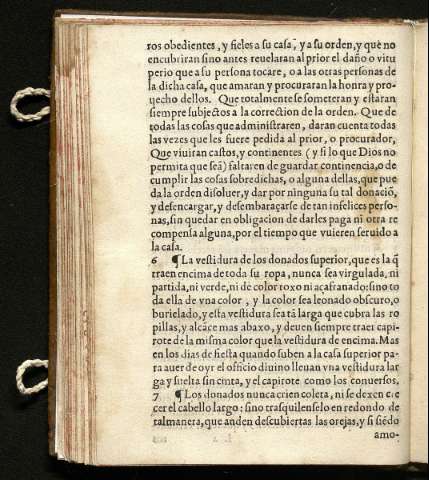 ros obedientes, y fieles a su casa, y a su orden, y que no
encubriran sino antes reuelaran al prior el daño o vitu
perio que a su persona tocare, o a las otras personas de
la dicha casa, que amaran y procuraran la honra y pro-
uecho dellos. Que totalmente se someteran y estaran
siempre subjectos a la correction de la orden. Que de
todas las cosas que administraren, daran cuenta todas
las vezes que les fuere pedida al prior, o procurador,
Que viuiran castos, y continentes (y si lo que Dios no
permita que seã) faltarẽ de guardar continencia, o de
cumplir las cosas sobredichas, o alguna dellas, que pue
da la orden disoluer, y dar por ninguna su tal donaciõ,
y desencargar, y desembaraçarse de tan infelices perso-
nas, sin quedar en obligacion de darles paga ni otra re
compensa alguna, por el tiempo que vuieren seruido a
la casa.
6 ¶ La vestidura de los donados superior, que es la q̃
traen encima de toda su ropa, nunca sea virgulada, ni
partida, ni verde, ni de color roxo ni açafranado: sino to
da ella de vna color, y la color sea leonado obscuro, o
burielado, y esta vestidura sea tã larga que cubra las ro
pillas, y alcãce mas abaxo, y deuen siempre traer capi-
rote de la misma color que la vestidura de encima. Mas
en los dias de fiesta quando suben a la casa superior pa-
ra auer de oyr el officio diuino lleuan vna vestidura lar
ga y suelta sin cinta, y el capirote como los conuersos.
7 ¶ Los donados nunca crien coleta, ni se dexen cre
cer el cabello largo: sino trasquilenselo en redondo de
tal manera, que anden descubiertas las orejas, y si siẽdo
amo-